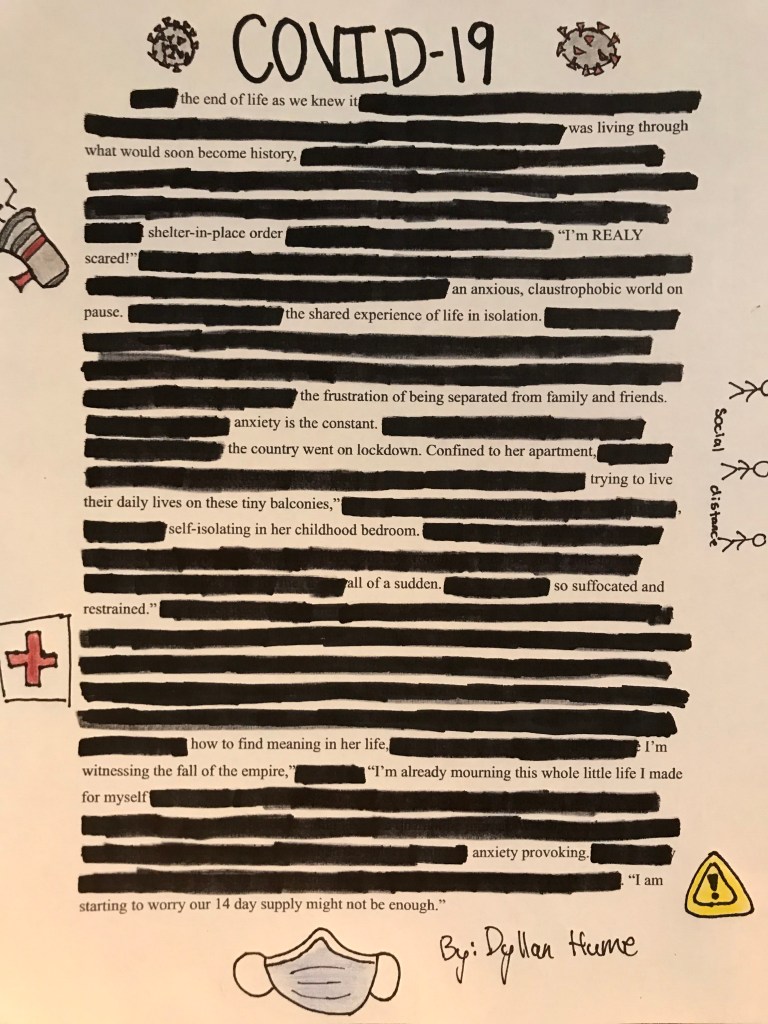 COVID-19
the end of life as we knew it
was living through
what would soon become history,
shelter-in-place order “I’m REALY
scared!”
an anxious, claustrophobic world on
pause. the shared experience of life in isolation.
the frustration of being separated from family and friends.
anxiety is the constant.
the country went on lockdown. Confined to her apartment,
trying to live
their daily lives on these tiny balconies,” ,
self-isolating in her childhood bedroom.
all of a sudden. so suffocated and
restrained.”
how to find meaning in her life, I’m
witnessing the fall of the empire,” “I’m already mourning this whole little life I made
for myself
anxiety provoking.
. “I am
starting to worry our 14 day supply might not be enough.”
By: Dyllan Hume
social distance